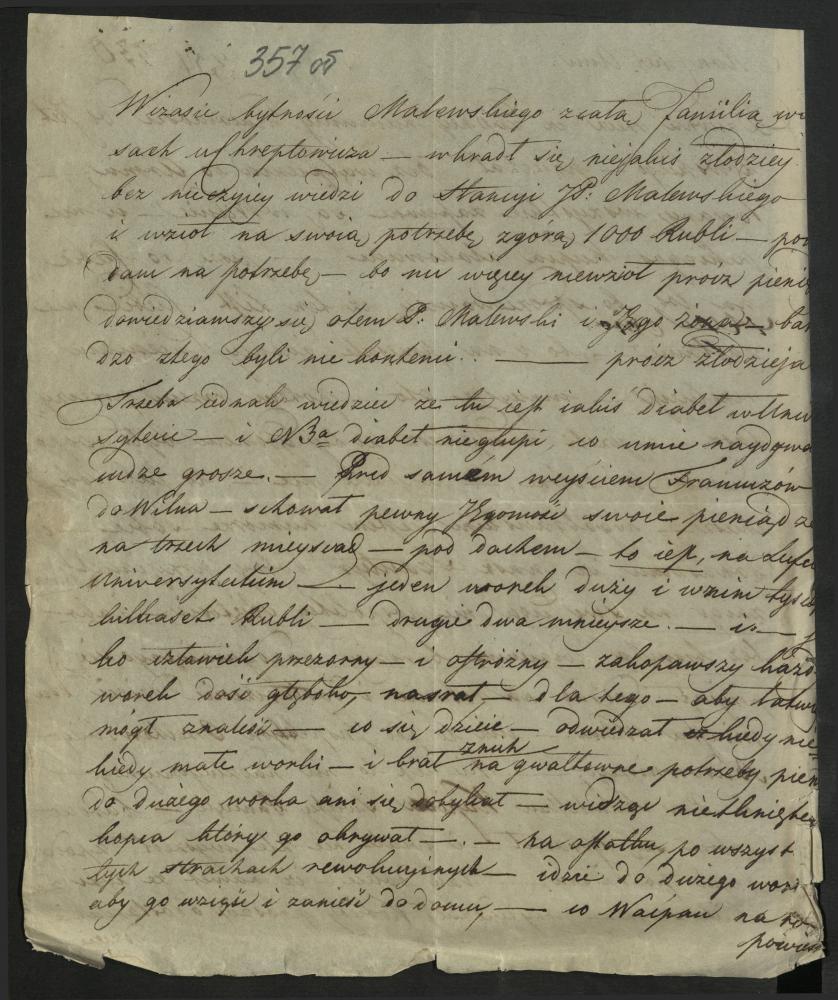 357
W czasie bytności Malewskiego z całą Familią w
sach u Chreptowicza — wkradł się niejakiś złodziey
bez nieczyicy wiedzi do Stancyi JP: Malewskiego
i wzioł na swoią potrzebę zgórą 1000 Rubli — po
dam na potrzebę — bo nic więcy niewzioł prócz pienię
dowiedziawszy się otem P: Malewski i Jego żona — bar
dzo ztego byli nie kontenci .. — prócz złodzieja
Trzeba iednak wiedzieć że tu iest iakiś Diabeł w Uniwer
sytecie — i NBa diabeł niegłupi, co umie naydywa
cudze grosze. — Pred samém weyściem Francuzów
do Wilna — schował pewny Jegomość swoie pieniądze
na trzech mieyscach — pod dachem — to iest, na
Universytetium — jeden worek duży i wnim tysi
kilkaset Rubli — drugie dwa mnieysze. — ia —
ko człowiek przezorny — i ostróżny — zakopawszy każd
worek dość głęboko, nasrał — dla tego — aby łatwi
mógł znaleść — co się dzieie — odwiedzał kiedy nie
kiedy małe worki — i brał znich na gwałtowne potrzeby pien
do dużego worka ani się dotykał — widząc nietknięte
kopca który go okrywał — . — na ostatku, po wszyst
tych strachach rewolucyjnych — idzie do dużego wor
aby go wziąść i zanieść do domu, — co Waćpan na to
powie